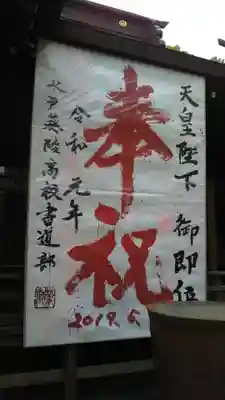 天皇陛下 御即位
奉祝
令和元年
水戸英陵高校書道部
2019.5.